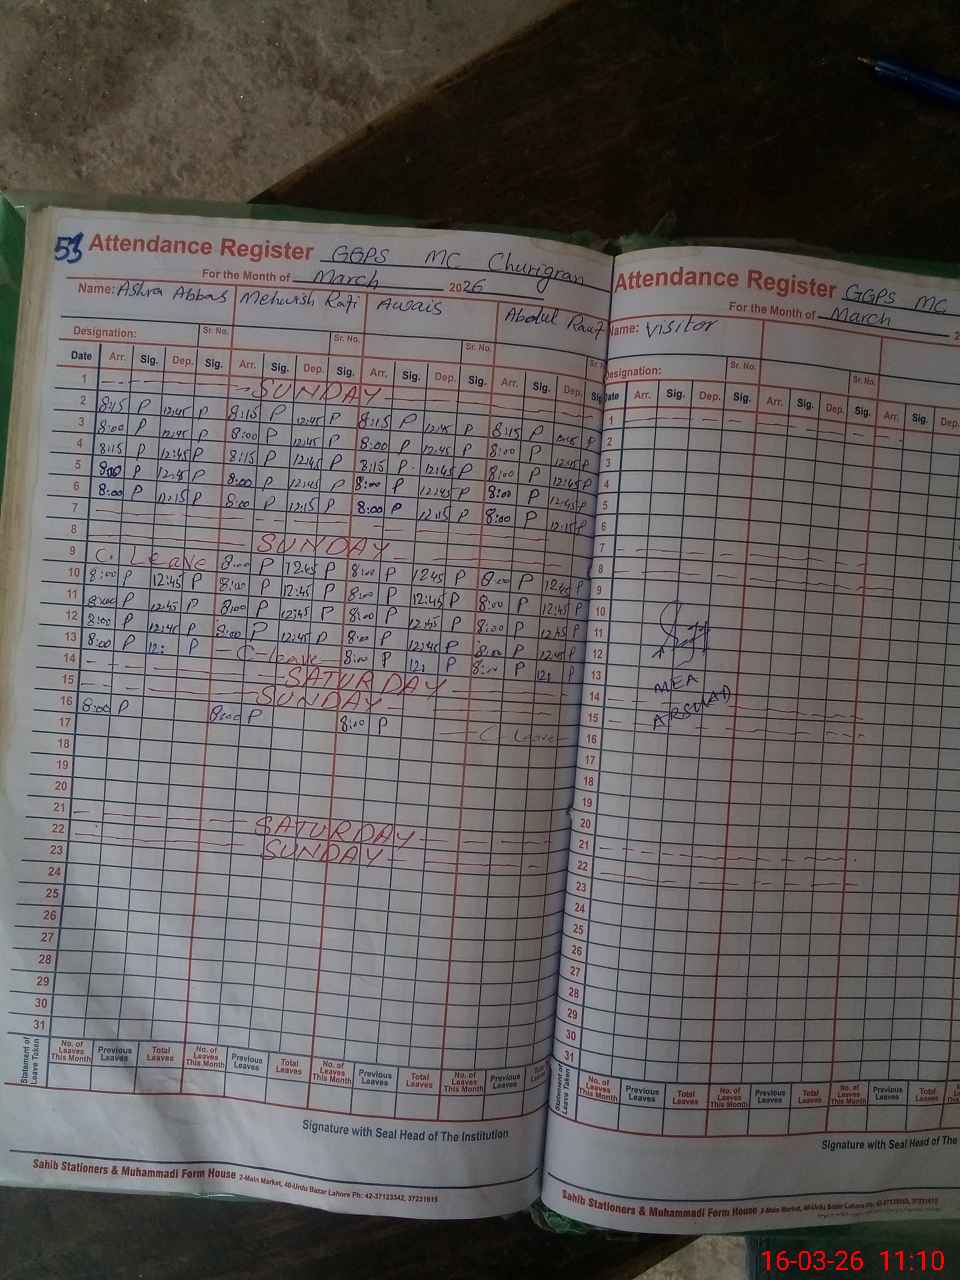 53 Attendance Register GGPS MC Churigran
For the Month of March 2026
Name: Ashra Abbas Mehwish Rafi Awais Abdul Rauf
Designation: Sr. No. Sr. No. Sr. No. Sr. N
Date Arr. Sig. Dep. Sig. Arr. Sig. Dep. Sig. Arr. Sig. Dep. Sig. Arr. Sig. Dep. Sig
1 SUNDAY
2 8:15 P 12:45 P 8:15 P 12:45 P 8:15 P 12:45 P 8:15 P 12:45 P
3 8:00 P 12:45 P 8:00 P 12:45 P 8:00 P 12:45 P 8:00 P 12:45 P
4 8:15 P 12:45 P 8:15 P 12:45 P 8:15 P 12:45 P 8:00 P 12:45 P
5 8:00 P 12:45 P 8:00 P 12:45 P 8:00 P 12:45 P 8:00 P 12:45 P
6 8:00 P 12:15 P 8:00 P 12:15 P 8:00 P 12:15 P 8:00 P 12:15 P
7
8 SUNDAY
9 C. Leave 8:00 P 12:45 P 8:00 P 12:45 P 8:00 P 12:45 P
10 8:00 P 12:45 P 8:00 P 12:45 P 8:00 P 12:45 P 8:00 P 12:45 P
11 8:00 P 12:45 P 8:00 P 12:45 P 8:00 P 12:45 P 8:00 P 12:45 P
12 8:00 P 12:45 P 8:00 P 12:45 P 8:00 P 12:45 P 8:00 P 12:45 P
13 8:00 P 12: P C-leave 8:00 P 12: P 8:00 P 12: P
14 SATURDAY
15 SUNDAY
16 8:00 P 8:00 P 8:00 P C-Leave
17
18
19
20
21 SATURDAY
22 SUNDAY
23
24
25
26
27
28
29
30
31
Statement of Leave Taken No. of Leaves This Month Previous Leaves Total Leaves No. of Leaves This Month Previous Leaves Total Leaves No. of Leaves This Month Previous Leaves Total Leaves No. of Leaves This Month Previous Leaves Total
Signature with Seal Head of The Institution
Sahib Stationers & Muhammadi Form House 2-Main Market, 40-Urdu Bazar Lahore Ph: 42-37123342, 37231619
Attendance Register GGPS MC
For the Month of March 2
Name: Visitor
Designation: Sr. No. Sr. No.
Date Arr. Sig. Dep. Sig. Arr. Sig. Dep. Sig. Arr. Sig. Dep.
1
2
3
4
5
6
7
8
9
10
11
12
13
14 MEA
15 ARSHAD
16
17
18
19
20
21
22
23
24
25
26
27
28
29
30
31
Statement of Leave Taken No. of Leaves This Month Previous Leaves Total Leaves No. of Leaves This Month Previous Leaves Total Leaves No. of Leaves This Month Previous Leaves Total Leaves
Signature with Seal Head of The
Sahib Stationers & Muhammadi Form House 2-Main Market, 40-Urdu Bazar Lahore Ph: 42-37123342, 37231619
16-03-26 11:10